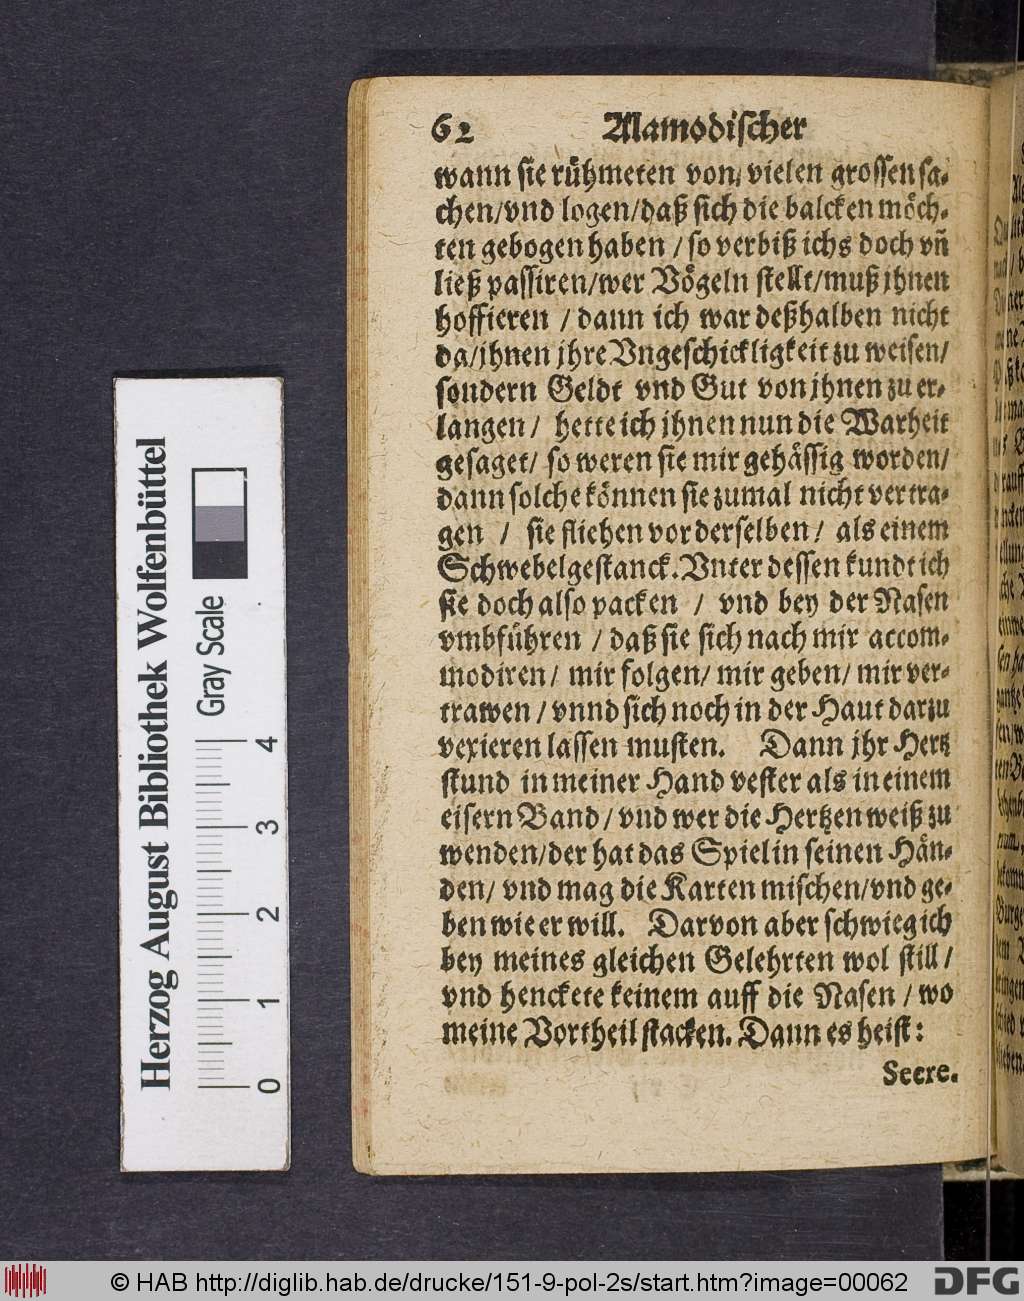 62 Alamodischer
wann sie rühmeten von, vielen grossen sa-
chen/vnd logen/daß sich die balcken möch-
ten gebogen haben / so verbiß ichs doch vñ
ließ passiren/wer Vögeln stellt/muß jhnen
hoffieren / dann ich war deßhalben nicht
da/jhnen jhre Vngeschickligkeit zu weisen/
sondern Geldt vnd Gut von jhnen zu er-
langen / hette ich jhnen nun die Warheit
gesaget/ so weren sie mir gehässig worden/
dann solche können sie zumal nicht vertra-
gen / sie fliehen vor derselben / als einem
Schwebelgestanck. Vnter dessen kundt ich
sie doch also packen / vnd bey der Nasen
vmbführen / daß sie sich nach mir accom-
modiren / mir folgen/ mir geben/ mir ver-
trawen / vnnd sich noch in der Haut darzu
vexieren lassen musten. Dann jhr Hertz
stund in meiner Hand vester als in einem
eisern Band / vnd wer die Hertzen weiß zu
wenden/der hat das Spiel in seinen Hän-
den/ vnd mag die Karten mischen/vnd ge-
ben wie er will. Darvon aber schwieg ich
bey meines gleichen Gelehrten wol still /
vnd henckete keinem auff die Nasen / wo
meine Vortheil stacken. Dann es heist:
Secre.
Herzog August Bibliothek Wolfenbüttel
Gray Scale
0 1 2 3 4
© HAB http://diglib.hab.de/drucke/151-9-pol-2s/start.htm?image=00062
DFG